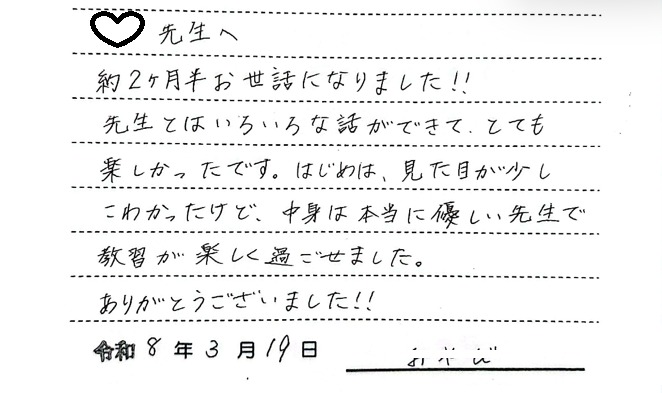 先生へ
約2ヶ月半お世話になりました!!
先生とはいろいろな話ができて、とても
楽しかったです。はじめは、見た目が少し
こわかったけど、中身は本当に優しい先生で
教習が楽しく過ごせました。
ありがとうございました!!
令和8年3月19日